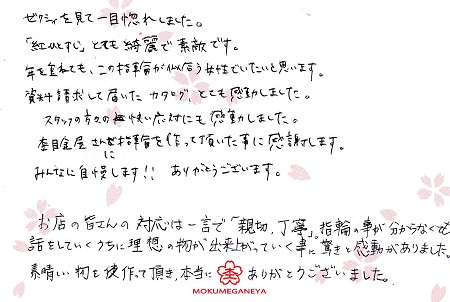 ゼクシィを見て一目惚れしました。
「紅ひとすじ」とても綺麗で素敵です。
年を重ねても、この指輪が似合う女性でいたいと思います。
資料請求して届いたカタログ、とても感動しました。
スタッフの方々の快い応対にも感動しました。
杢目金屋さんに指輪を作って頂いた事に感謝します。
みんなに自慢します!! ありがとうございます。
お店の皆さんの対応は一言で「親切、丁寧」。指輪の事が分からなくても
話をしていくうちに理想の物が出来上がっていく事に驚きと感動がありました。
素晴しい物を作って頂き、本当にありがとうございました。
MOKUMEGANEYA